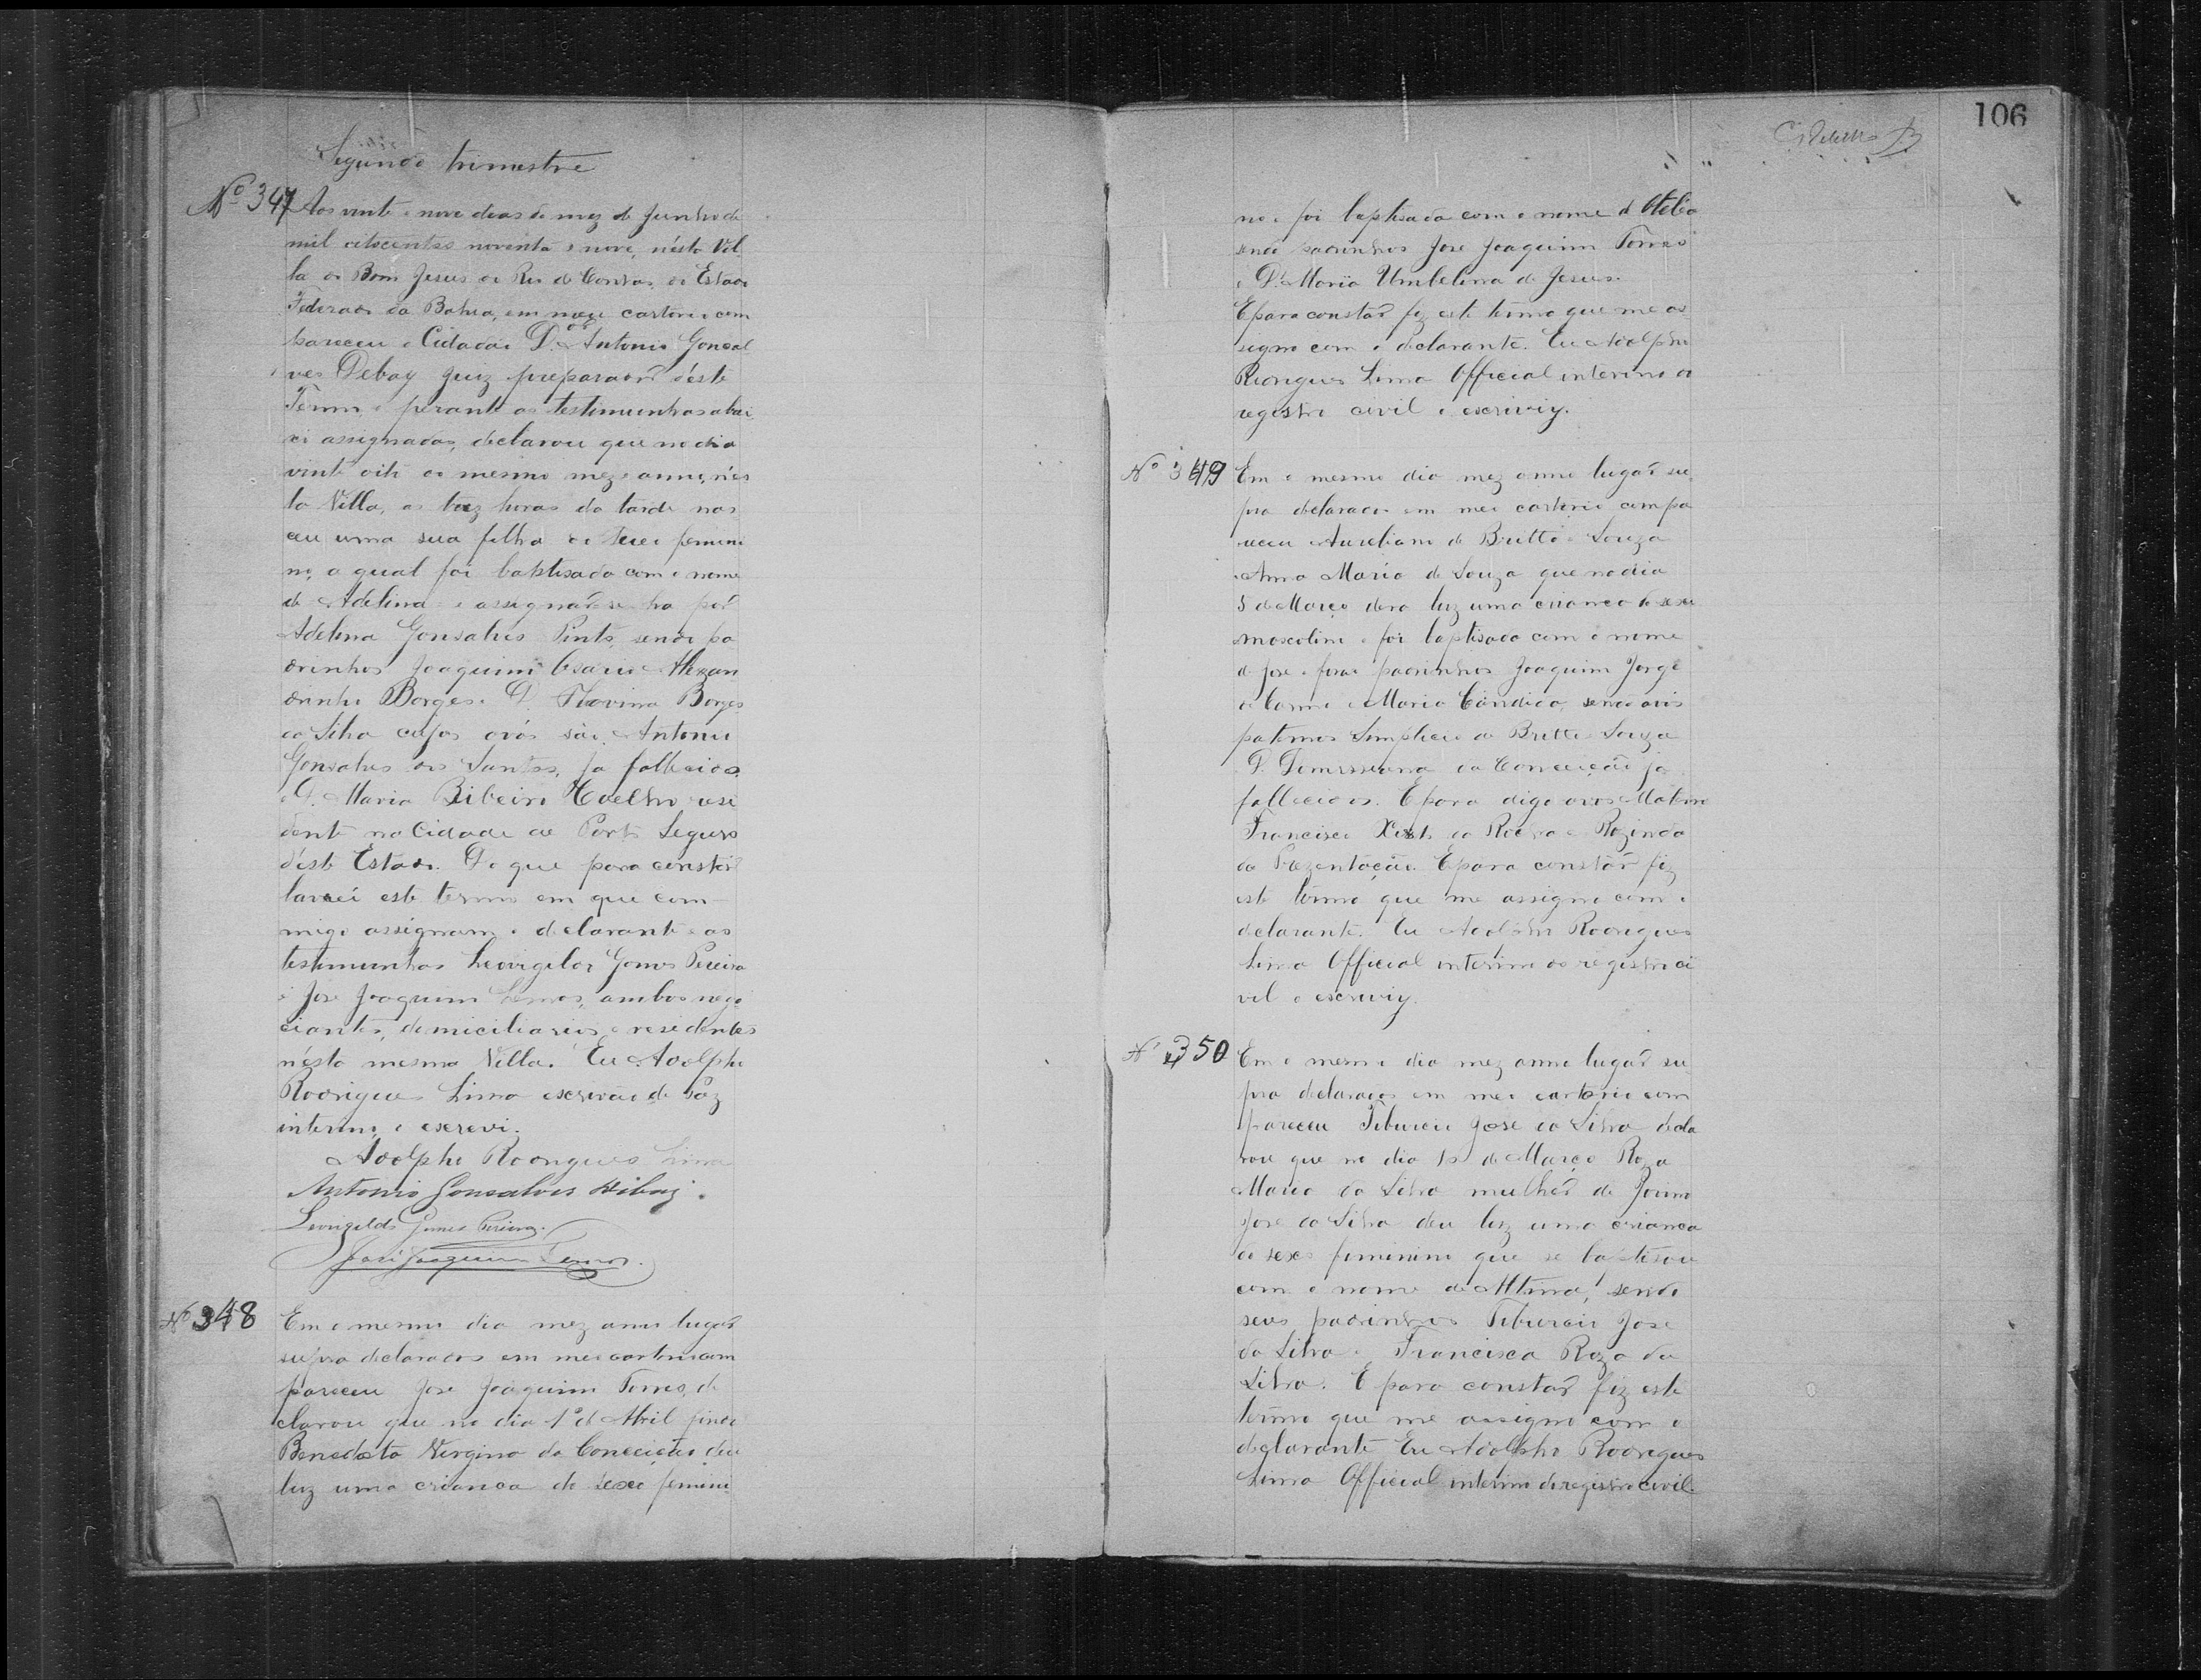 Segundo trimestre
Nº 347 Aos vinte e nove dias do mez de Junho de
mil oitocentos noventa e nove, nésta Vil
la do Bom Jesus do Rio de Contas, do Estado
Federado da Bahia, em meu cartorio com
pareceu o Cidadão D.or Antonio Gonsal
ves Debay juiz preparador déste
Termo, e perante as testimunhas abai
xo assignadas, declarou que no dia
vinte oito do mesmo mez e anno, nés
ta Villa, as trez horas da tarde nas
ceu uma sua filha do sexo femini
no, a qual foi baptisada com o nome
de Adelina e assignar-se-ha por
Adelina Gonsalves Pinto, sendo pa
drinhos Joaquim Cesario Alexan
drinho Borges e D. Flavina Borges
da Silva cujos avós são Antonio
Gonsalves dos Santos, ja fallecido
e D. Maria Ribeiro Coelho resi
dente na Cidade de Porto Seguro
déste Estado. Do que para constar
lavrei este termo em que com-
migo assignam o declarante e as
testimunhas Leovigildo Gomes Pereira
e José Joaquim Lemos, ambos nego
ciantes, domiciliarios e residentes
nésta mesma Villa. Eu Adolpho
Rodrigues Lima escrivão de paz
interino, o escrevi.
Adolpho Rodrigues Lima
Antonio Gonsalves Debay.
Leovigildo Gomes Pereira.
José Joaquim Lemos.
Nº 348 Em o mesmo dia mez anno lugar
supra declarados em meo cartorio com
pareceu José Joaquim Torres, de
clarou que no dia 1º de Abril findo
Benedicta Virgina da Conceição deu
luz uma crianca do sexo femini
106
no e foi baptisada com o nome de Otelia
sendo padrinhos José Joaquim Torres
e D. Maria Umbelina de Jesus.
E para constar fiz este termo que me as
signo com o declarante. Eu Adolpho
Rodrigues Lima Official interino do
registro civil o escriviy.
Nº 349 Em o mesmo dia mez anno lugar su
pra declarados em meo cartorio compa
receu Aureliano de Britto e Souza
Anna Maria de Souza que no dia
5 de Março dera luz uma crianca do sexo
mascolino e foi baptisado com o nome
de José e forão padrinhos Joaquim Jorge
do Carmo e Maria Cândida, sendo avós
paternos Simplicio de Britto Souza
D. da Conceição ja
fallecidos. E para digo avos Materno
Francisco da Rocha e Rozinda
da Prezentação. E para constar fiz
este termo que me assigno com o
declarante. Eu Adolpho Rodrigues
Lima Official interino do registro ci
vil o escriviy.
Nº 350 Em o mesmo dia mez anno lugar su
pra declarados em meo cartorio com
pareceu Tiburcio José da Silva decla
rou que no dia de Março Roza
Maria da Silva mulher de
José da Silva deu luz uma crianca
do sexo feminino que se baptisou
com o nome de Altina, sendo
seus padrinhos Tiburcio José
da Silva e Francisca Roza da
Silva. E para constar fiz este
termo que me assigno com o
declarante Eu Adolpho Rodrigues
Lima Official interino do registro civil.